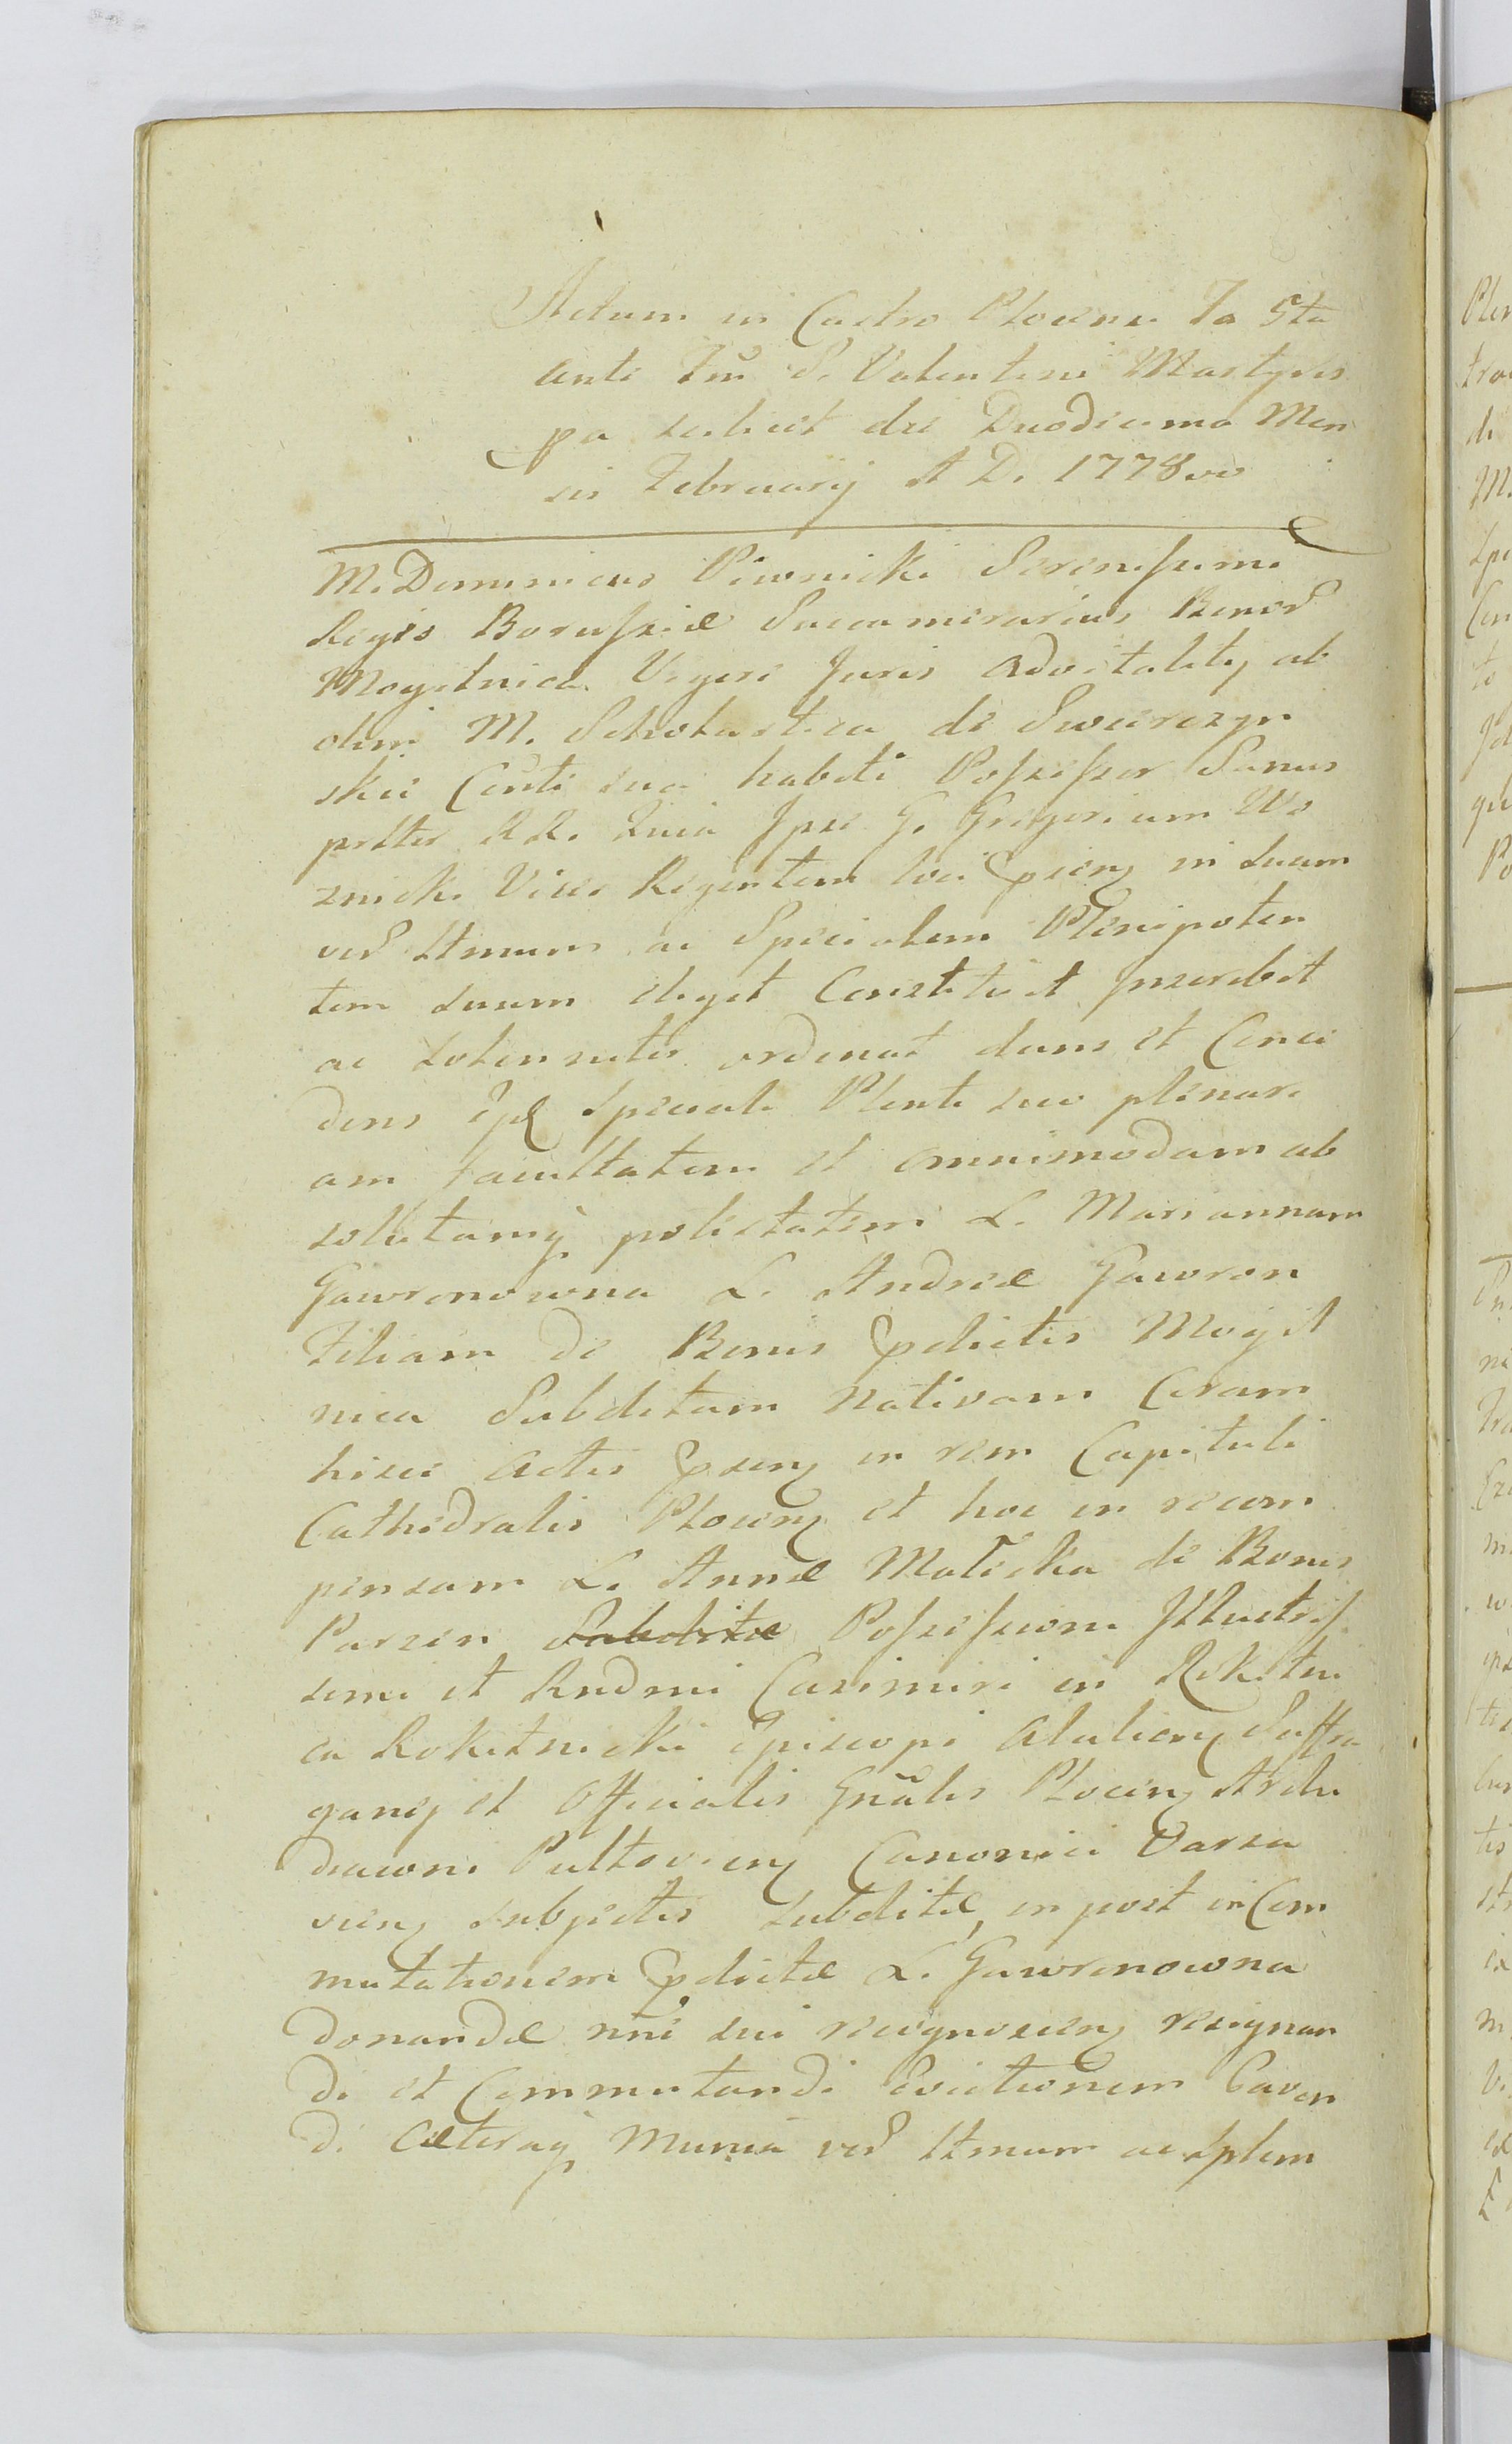 Actum in Castro Plocensi Fa 5ta
ante Fm S. Valentini Martyris
pa scilicet die Duodecima Men
sis Februarij A D. 1778vo
M. Dominicus Piwnicki Serenissimi
Regis Borussiæ Succamerarius Bonor
Mogilnica Vigore Juris Advitalitij ab
olim M. Scholastica de Swierczyn
skie Conte sua habiti Possessor Sanus
prster RR. Quia Ipse G. Gregorium Wo
znicki Vice Regentem loci psen in suum
ver ltmum ac Specialem Plenipoten
tem suum elegit Constituit Inscribit
ac solenniter ordinat dans et Conce
dens Speciali Plenti suo plenari
am facultatem et omnimodam ab
solutamq potestatem L. Mariannam
Gawronowna L. Andreæ Gawron
Filiam de Bonis pdictis Mogil
nica Subditam nativam Coram
hisce Actis psen in rem Capituli
Cathedralis Plocen et hoc in recom
pensam L. Annæ Matoska de Bonis
Parzen Subditæ Possessioni Illustris
simi et Rndmi Casimiri in Rokitni
ca Rokitnicki Episcopi Alalien Suffra
ganej et Officialis Gnalis Plocen Archi
diaconi Pultovien Canonici Varsa
vien subjectis subditæ, in post in Com
mutationem pdictæ L. Gawronowna
donandæ nne sui recognoscen resignan
di et Commutandi Evictionem Caven
di Cæteraq Munia ver ltmum ac splem